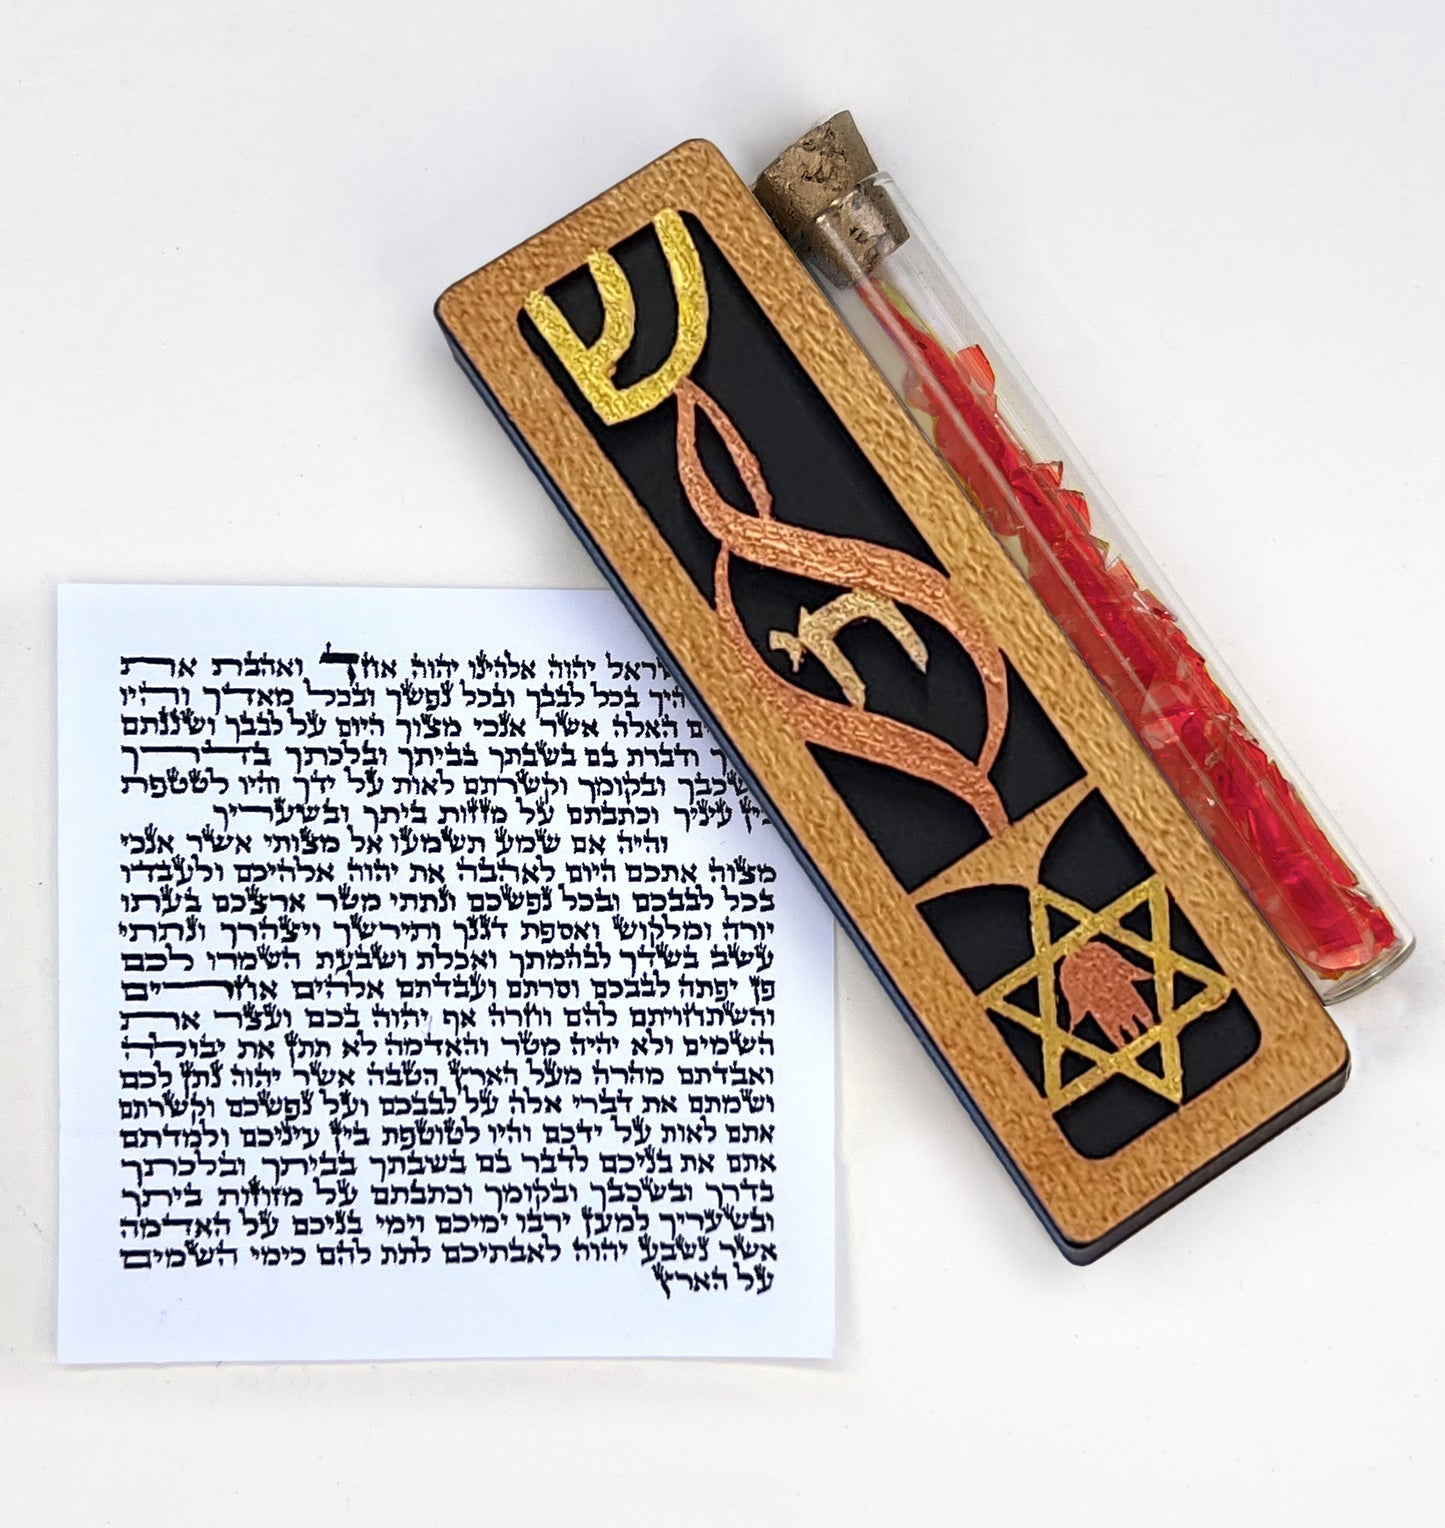 ש
חי
שראל יהוה אלהינו יהוה אחד ואהבת את
היך בכל לבבך ובכל נפשך ובכל מאדך והיו
ים האלה אשר אנכי מצוך היום על לבבך ושננתם
ך ודברת בם בשבתך בביתך ובלכתך בדרך
שכבך ובקומך וקשרתם לאות על ידך והיו לטטפת
בין עיניך וכתבתם על מזזות ביתך ובשעריך
והיה אם שמע תשמעו אל מצותי אשר אנכי
מצוה אתכם היום לאהבה את יהוה אלהיכם ולעבדו
בכל לבבכם ובכל נפשכם ונתתי מטר ארצכם בעתו
יורה ומלקוש ואספת דגנך ותירשך ויצהרך ונתתי
עשב בשדך לבהמתך ואכלת ושבעת השמרו לכם
פן יפתה לבבכם וסרתם ועבדתם אלהים אחרים
והשתחויתם להם וחרה אף יהוה בכם ועצר את
השמים ולא יהיה מטר והאדמה לא תתן את יבולה
ואבדתם מהרה מעל הארץ הטבה אשר יהוה נתן לכם
ושמתם את דברי אלה על לבבכם ועל נפשכם וקשרתם
אתם לאות על ידכם והיו לטוטפת בין עיניכם ולמדתם
אתם את בניכם לדבר בם בשבתך בביתך ובלכתך
בדרך ובשכבך ובקומך וכתבתם על מזוזות ביתך
ובשעריך למען ירבו ימיכם וימי בניכם על האדמה
אשר נשבע יהוה לאבתיכם לתת להם כימי השמים
על הארץ